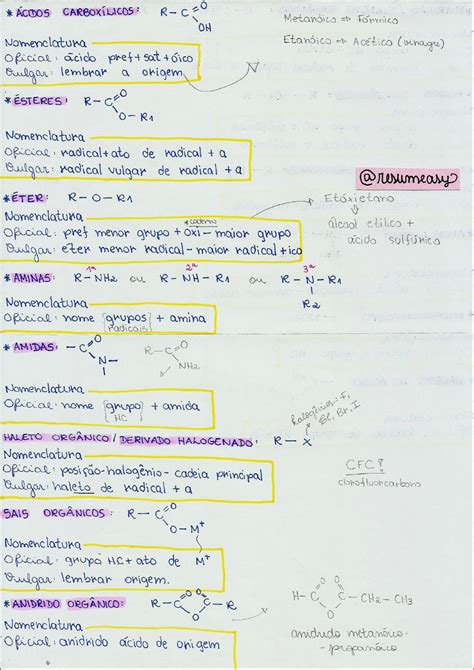 * ÁCDOS CARBOXÍLICOS: R-C=O
OH
Metanóico ⇒ Fórmico
Etanóico ⇒ Acético (vinagre)
Nomenclatura
Oficial: ácido pref + sat + óico
Vulgar: lembrar a origem
* ÉSTERES: R-C=O
O-R1
Nomenclatura
Oficial: radical + ato de radical + a
Vulgar: radical vulgar de radical + a
@resumeasy
* ÉTER: R-O-R1
Etóxietano
↓
álcool etílico +
ácido sulfúrico
Nomenclatura
* caderno
Oficial: pref menor grupo + oxi - maior grupo
Vulgar: eter menor radical - maior radical + ico
1ª 2ª 3ª
* AMINAS: R-NH2 ou R-NH-R1 ou R-N-R1
R2
Nomenclatura
Oficial: nome {grupos} + amina
radicais
* AMIDAS: -C=O
N-
R-C=O
NH2
Nomenclatura
Oficial: nome {grupo} + amida
HC
Halogênios: F,
Cl, Br, I
HALETO ORGÂNICO / DERIVADO HALOGENADO: R-X
Nomenclatura
Oficial: posição - halogênio - cadeia principal
Vulgar: haleto de radical + a
CFC!
clorofluorcarbono
SAIS ORGÂNICOS: R-C=O
O-M+
Nomenclatura
Oficial: grupo HC + ato de M+
Vulgar: lembrar origem.
* ANIDRIDO ORGÂNICO: R-C O C-R
O O
H-C O C-CH2-CH3
O O
anidrido metanóico-
-propanóico
Nomenclatura
Oficial: anidrido ácido de origem